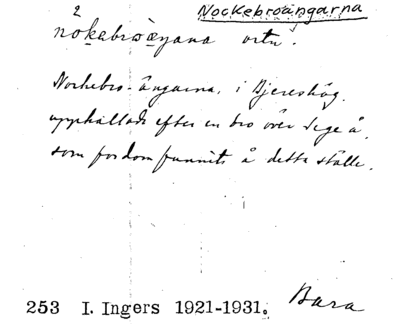 Nockebroängarna
2
nokabroäŋana ortn.
Nockebro-ängarna, i Bjereshög,
uppkallade efter en bro över Sege å,
som fordom funnits å detta ställe.
253 I. Ingers 1921-1931. Bara